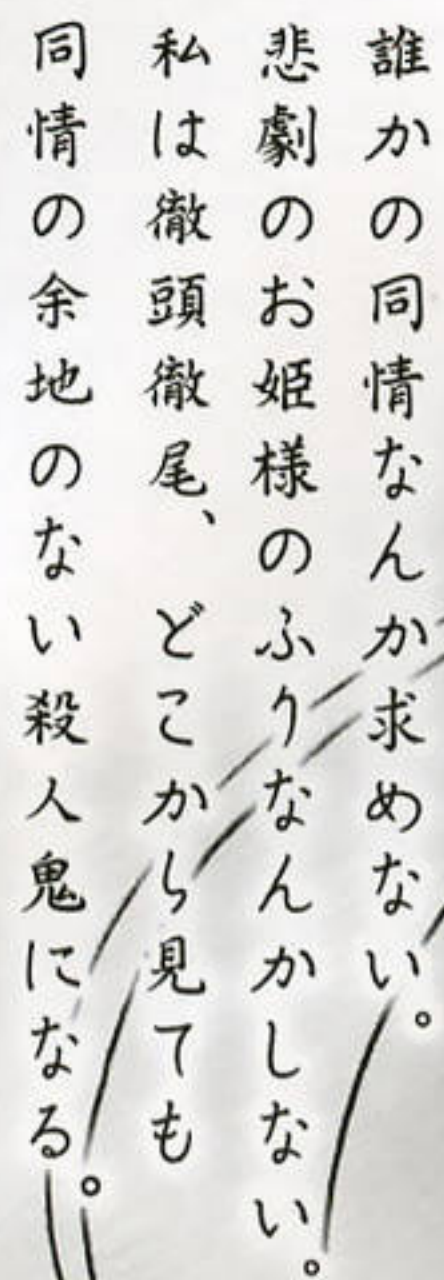 誰かの同情なんか求めない。
悲劇のお姫様のふりなんかしない。
私は徹頭徹尾、どこから見ても
同情の余地のない殺人鬼になる。